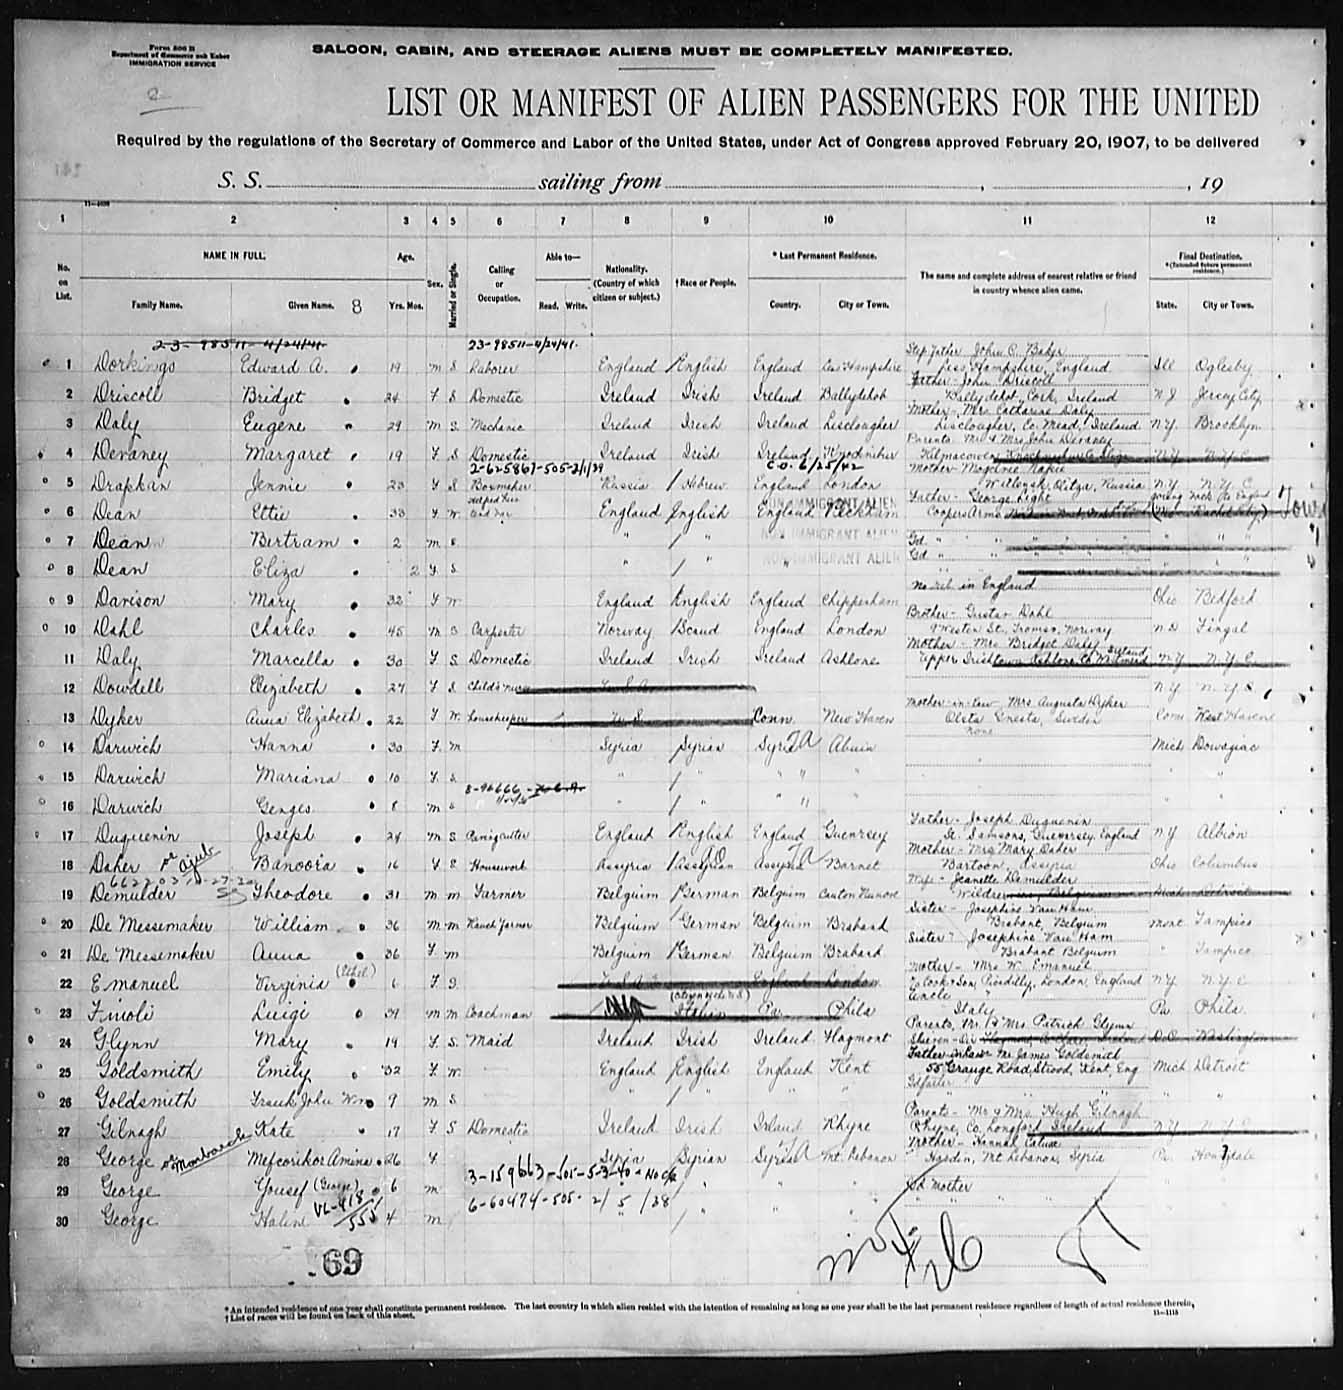 Form 500 B
Department of Commerce and Labor
IMMIGRATION SERVICE
SALOON, CABIN, AND STEERAGE ALIENS MUST BE COMPLETELY MANIFESTED.
2
LIST OR MANIFEST OF ALIEN PASSENGERS FOR THE UNITED
Required by the regulations of the Secretary of Commerce and Labor of the United States, under Act of Congress approved February 20, 1907, to be delivered
S. S. sailing from , , 19
1 2 3 4 5 6 7 8 9 10 11 12
No. on List. NAME IN FULL. Family Name. Given Name. 8 Age. Yrs. Mos. Sex. Married or Single. Calling or Occupation. Able to— Read. Write. Nationality. (Country of which citizen or subject.) †Race or People. *Last Permanent Residence. Country. City or Town. The name and complete address of nearest relative or friend in country whence alien came. Final Destination. *(Intended future permanent residence.) State. City or Town.
23-98511-4/24/41 23-98511-4/24/41.
Step father John C. Baker
1 Dorkings Edward A. 19 m S Laborer England English England Hampshire Hampshire, England Ill Oglesby
Father - John Driscoll
2 Driscoll Bridget 24 F S Domestic Ireland Irish Ireland Ballydehob Ballydehob, Cork, Ireland N.J. Jersey City
Mother - Mrs. Catharine Daly
3 Daly Eugene 29 m S. Mechanic Ireland Irish Ireland Lisclougher Lisclougher, Co. Mead, Ireland N.Y. Brooklyn
Parents Mr & Mrs John Devaney
4 Devaney Margaret 19 F S Domestic Ireland Irish Ireland Kilmacover N.Y. N.Y.C.
2-625867-505-2/1/39 C.O. 6/25/42
5 Drapkan Jennie 23 F S Boxmaker Russia Hebrew England London Russia N.Y. N.Y.C
Father - George Light going back to England
6 Dean Ettie 33 F W. England English England Peckham Coopers Arms
NON IMMIGRANT ALIEN
7 Dean Bertram 2 m S. " " Gd " "
NON IMMIGRANT ALIEN
8 Dean Eliza 2 F S " " Gd " "
NON IMMIGRANT ALIEN
no rel. in England
9 Davison Mary 32 F W. England English England Chippenham Ohio Bedford
Brother - Gustav Dahl
10 Dahl Charles 45 m S Carpenter Norway Scand England London Tromso, Norway N.D Fingal
Mother - Mrs Bridget Daly
11 Daly Marcella 30 F S. Domestic Ireland Irish Ireland Athlone Upper Irishtown Athlone Ireland N.Y N.Y.C.
12 Dowdell Elizabeth 27 F S Child's nurse U.S.A. N.Y. N.Y.C.
Mother-in-law - Mrs Augusta Dyker
13 Dyker Anna Elizabeth 22 F W. Housekeeper U.S. Conn. New Haven Sweden Conn West Haven
none
14 Darwich Hanna 30 F. m Syria Syrian Syria Mich Dowagiac
15 Darwich Mariana 10 F. S. " " " "
16 Darwich Genges 8 m S " "
Father - Joseph Duquenin
17 Duquenin Joseph 24 m S England English England Guernsey St. Samsons, Guernsey England N.Y Albion
Mother - Mrs Mary Daher
18 Daher or Ajub Banoora 16 F S. Housework Assyria Assyrian Assyria Barnet Bartoon, Assyria Ohio Columbus
Wife - Jeanette Demulder
19 Demulder Theodore 31 m m Farmer Belgium German Belgium Mich Detroit
Sister - Josephine Van Ham
20 De Messemaker William 36 m m Ranch Farmer Belgium German Belgium Brabard Brabant, Belgium Mont Tampico
Sister - Josephine Van Ham
21 De Messemaker Anna 36 F. m Belgium German Belgium Brabard Brabant Belgium " Tampico
(Ethel) Mother - Mrs W. Emanuel
22 Emanuel Virginia 6 F S. U.S.A England London Cook & Son, Picadilly, London, England N.Y. N.Y.C
Uncle
23 Finoli Luigi 39 m m Coachman Italian Pa Phila Italy Pa Phila.
Parents, Mr & Mrs Patrick Glynn
24 Glynn Mary 19 F. S. Maid Ireland Irish Ireland Hagmont D.C. Washington
Father-in-law Mr James Goldsmith
25 Goldsmith Emily 32 F. W. England English England Kent 55 Grange Road, Strood, Kent, Eng Mich Detroit
Gdfather
26 Goldsmith Frank John Wm 9 m S " " " " " "
Parents - Mr & Mrs Hugh Gilnagh
27 Gilnagh Kate 17 F S Domestic Ireland Irish Ireland Rhyne Rhyne, Co. Longford Ireland N.Y. N.Y.C
28 George Amina 26 F Syria Syrian Syria Mt. Lebanon Hasdin, Mt Lebanon, Syria Pa
3-159663-505-5-3-40
29 George Yousef (George) 6 m " " "
6-60474-505-2/5/38
30 George 4 m " " "
69
*An intended residence of one year shall constitute permanent residence. The last country in which alien resided with the intention of remaining as long as one year shall be the last permanent residence regardless of length of actual residence therein.
†List of races will be found on back of this sheet.
11—1115